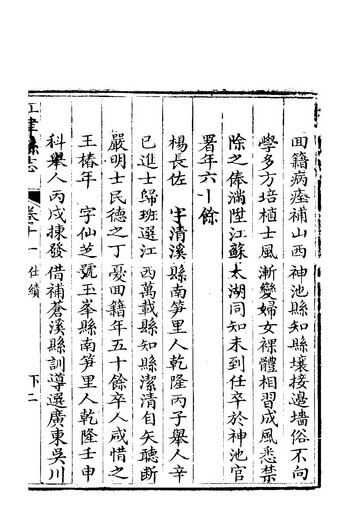 回籍病痊補山西神池縣知縣壤接邊墻俗不向
學多方培植士風漸變婦女裸體相習成風悉禁
除之俸滿陞江蘇太湖同知未到任卒於神池官
署年六十餘
楊長佐 字清溪縣南笋里人乾隆丙子舉人辛
巳進士歸班選江西萬載縣知縣潔清自矢聽斷
嚴明士民德之丁憂回籍年五十餘卒人咸惜之
王椿年 字仙芝號玉峯縣南笋里人乾隆壬申
科舉人丙戌揀發借補蒼溪縣訓導選廣東吳川
江津縣志 卷十一 仕績 下二